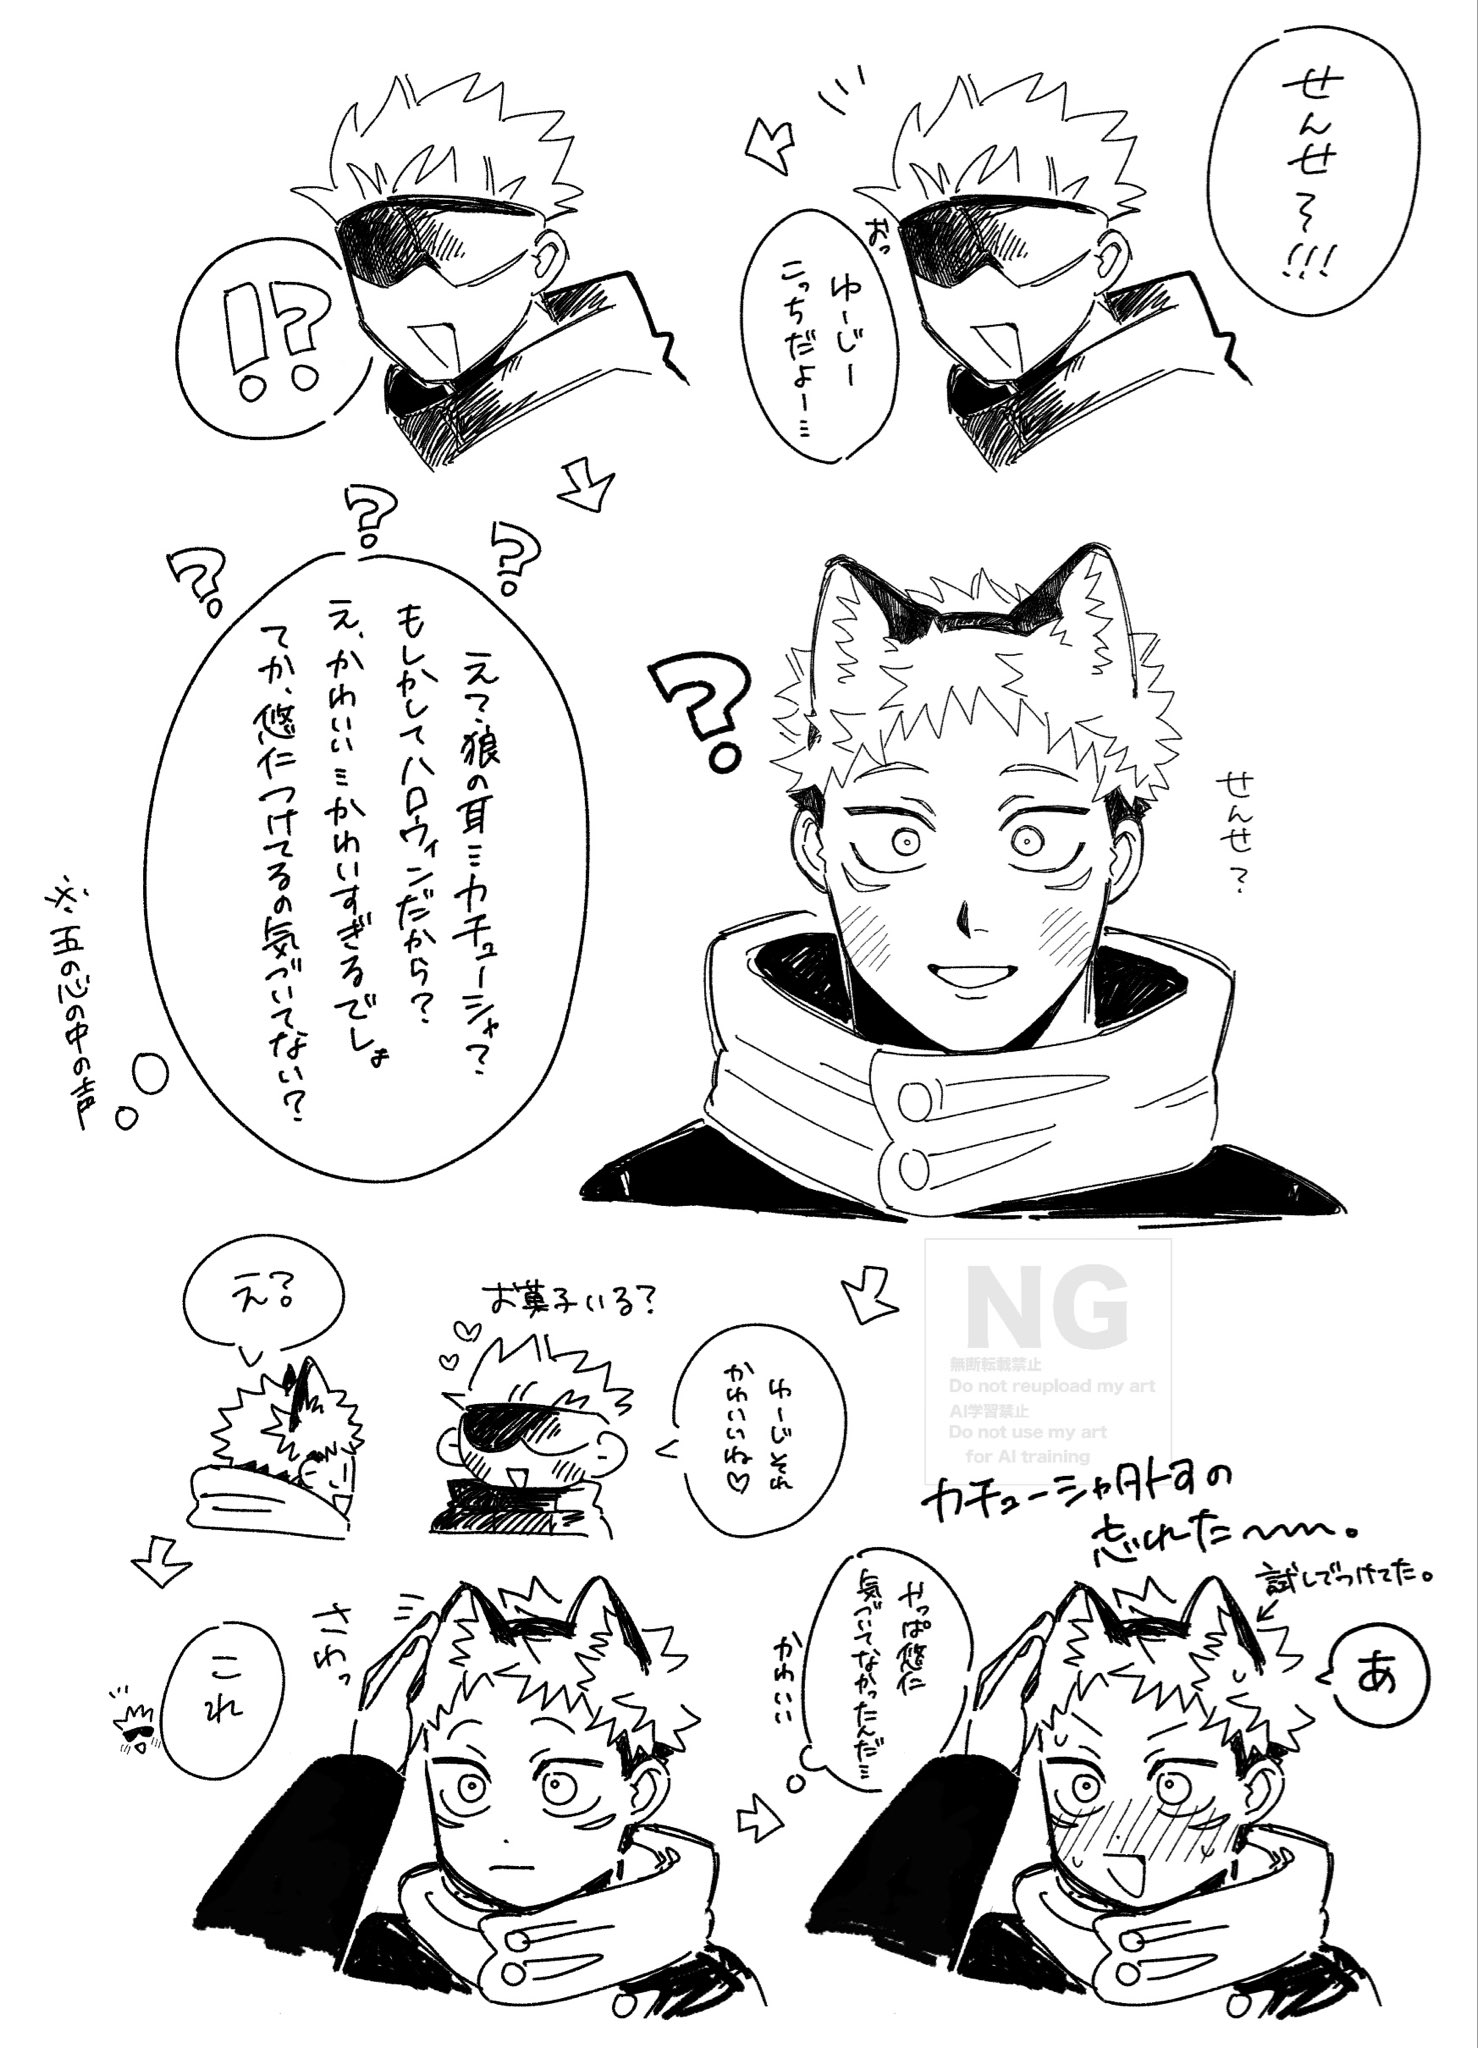 せんせ〜!!!
おっ
ゆーじー
こっちだよー…
!?
?
?
?
え?狼の耳…カチューシャ?
もしかしてハロウィンだから?
え、かわいい…かわいすぎるでしょ
てか、悠仁つけてるの気づいてない?
※五の心の中の声
?
せんせ?
NG
無断転載禁止
Do not reupload my art
AI学習禁止
Do not use my art
for AI training
ゆーじそれ
かわいいね♡
お菓子いる?
え?
これ
さわっ
やっぱ悠仁
気づいてなかったんだ…
かわいい
カチューシャ外すの
忘れた〜〜〜。
試しでつけてた。
あ